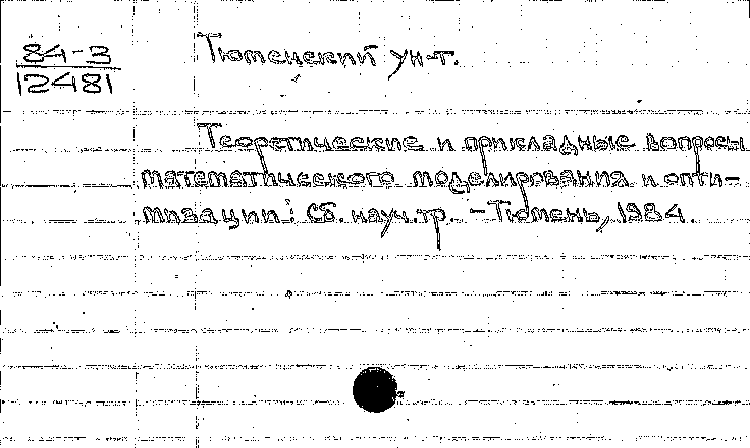 84-3
12481
Тюменский ун-т.
Теоретические и прикладные вопросы
математического моделирования и опти-
мизации: Сб. науч. тр. - Тюмень, 1984.